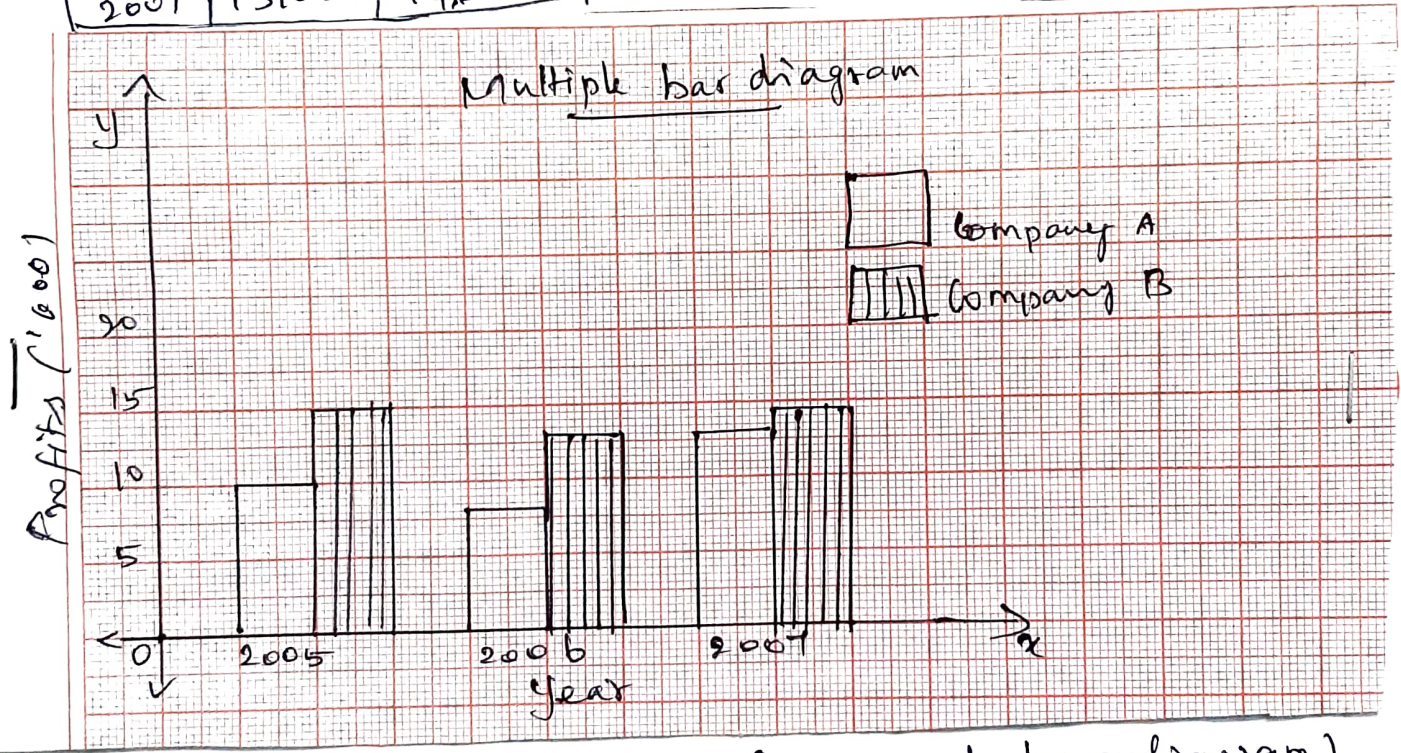 2007
Multiple bar diagram
y
Company A
Company B
Profits ('000)
20
15
10
5
0
2005 2006 2007
x
Year
bar diagram)